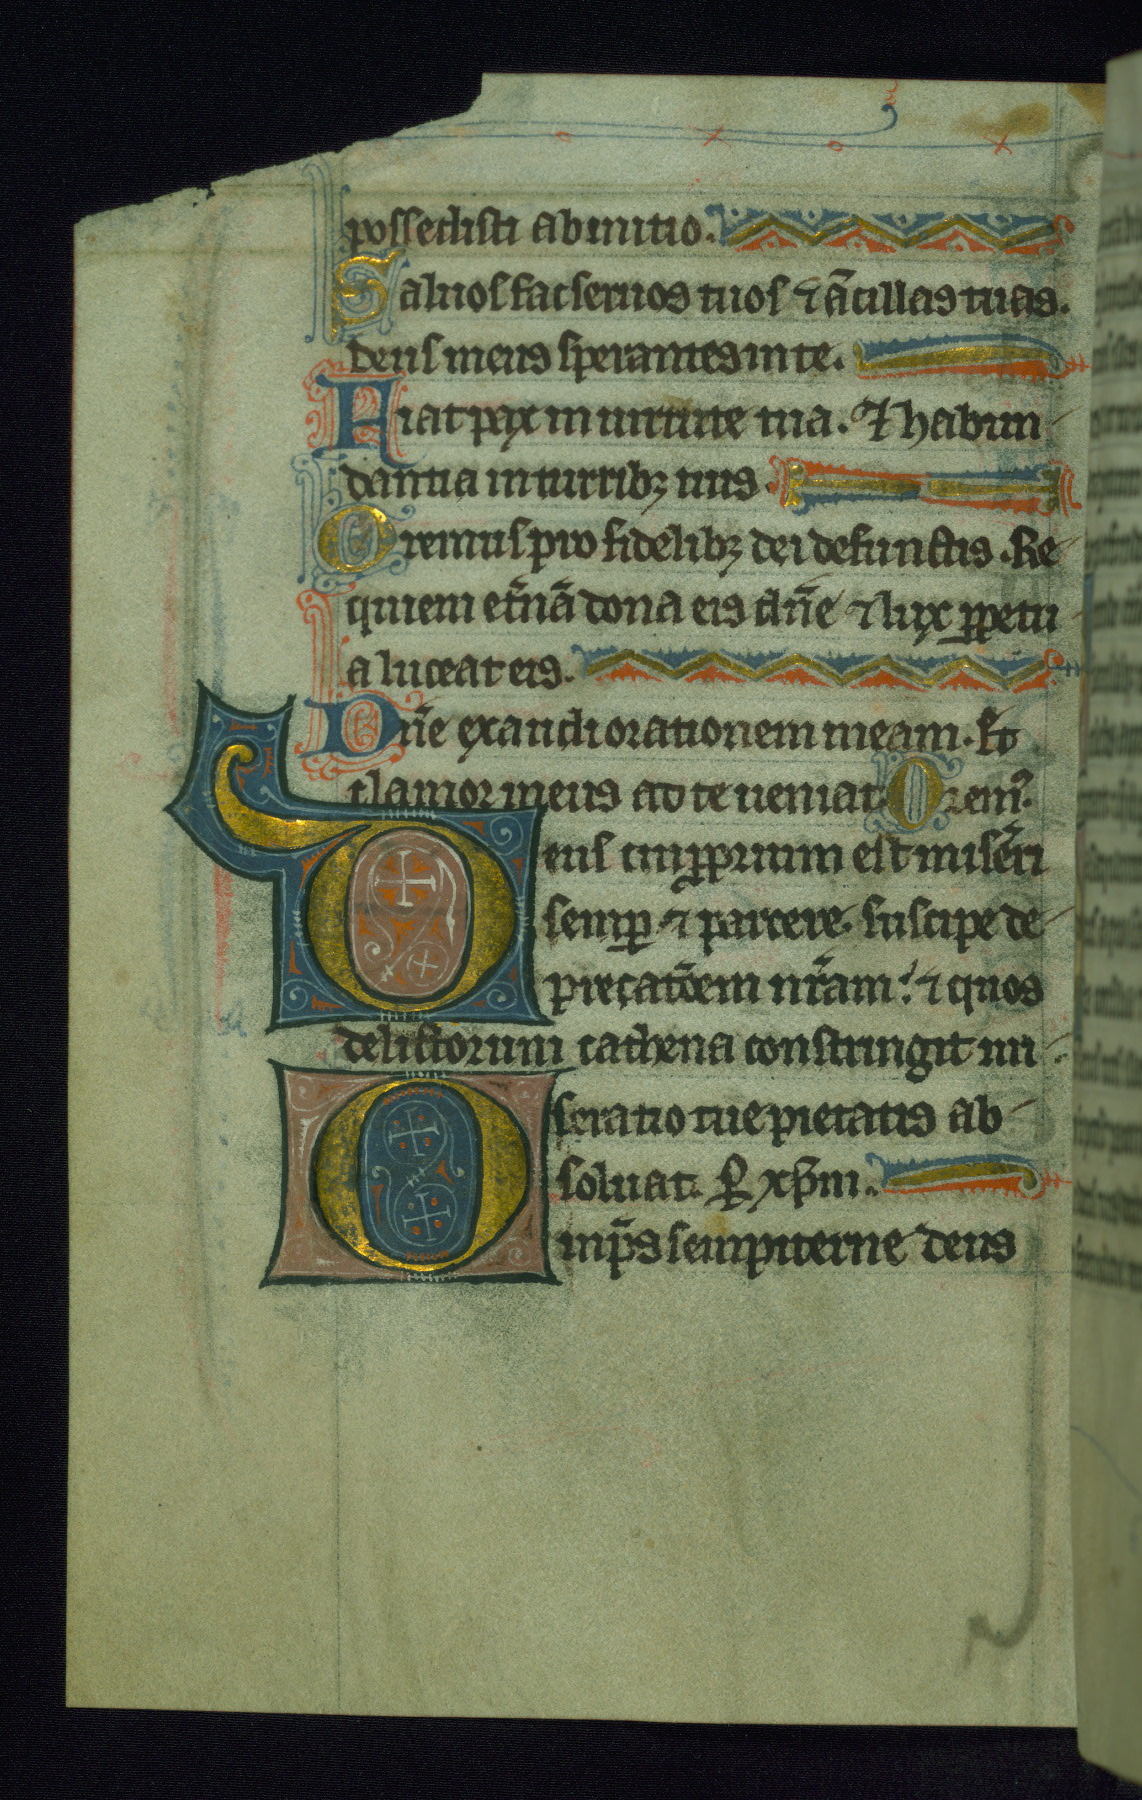 possedisti ab initio.
Saluos fac seruos tuos ⁊ ācillas tuas.
deus meus sperantes in te.
Fiat pax in uirtute tua. Et habun
dantia in turribꝫ tuis.
Oremus pro fidelibꝫ dei defunctis. Re
quiem et̄nā dona eis dn̄e ⁊ lux ꝑpetu
a luceat eis.
Dn̄e exaudi orationem meam. Et
clamor meus ad te ueniat Orem̄.
Deus cui ꝓprium est miser̄i
semꝑ ⁊ parcere. suscipe de
precatōem nr̄am. ⁊ quos
delictorum cathena constringit mi
seratio tue pietatis ab
soluat. P̱ xp̄m.
Omp̄s sempiterne deus